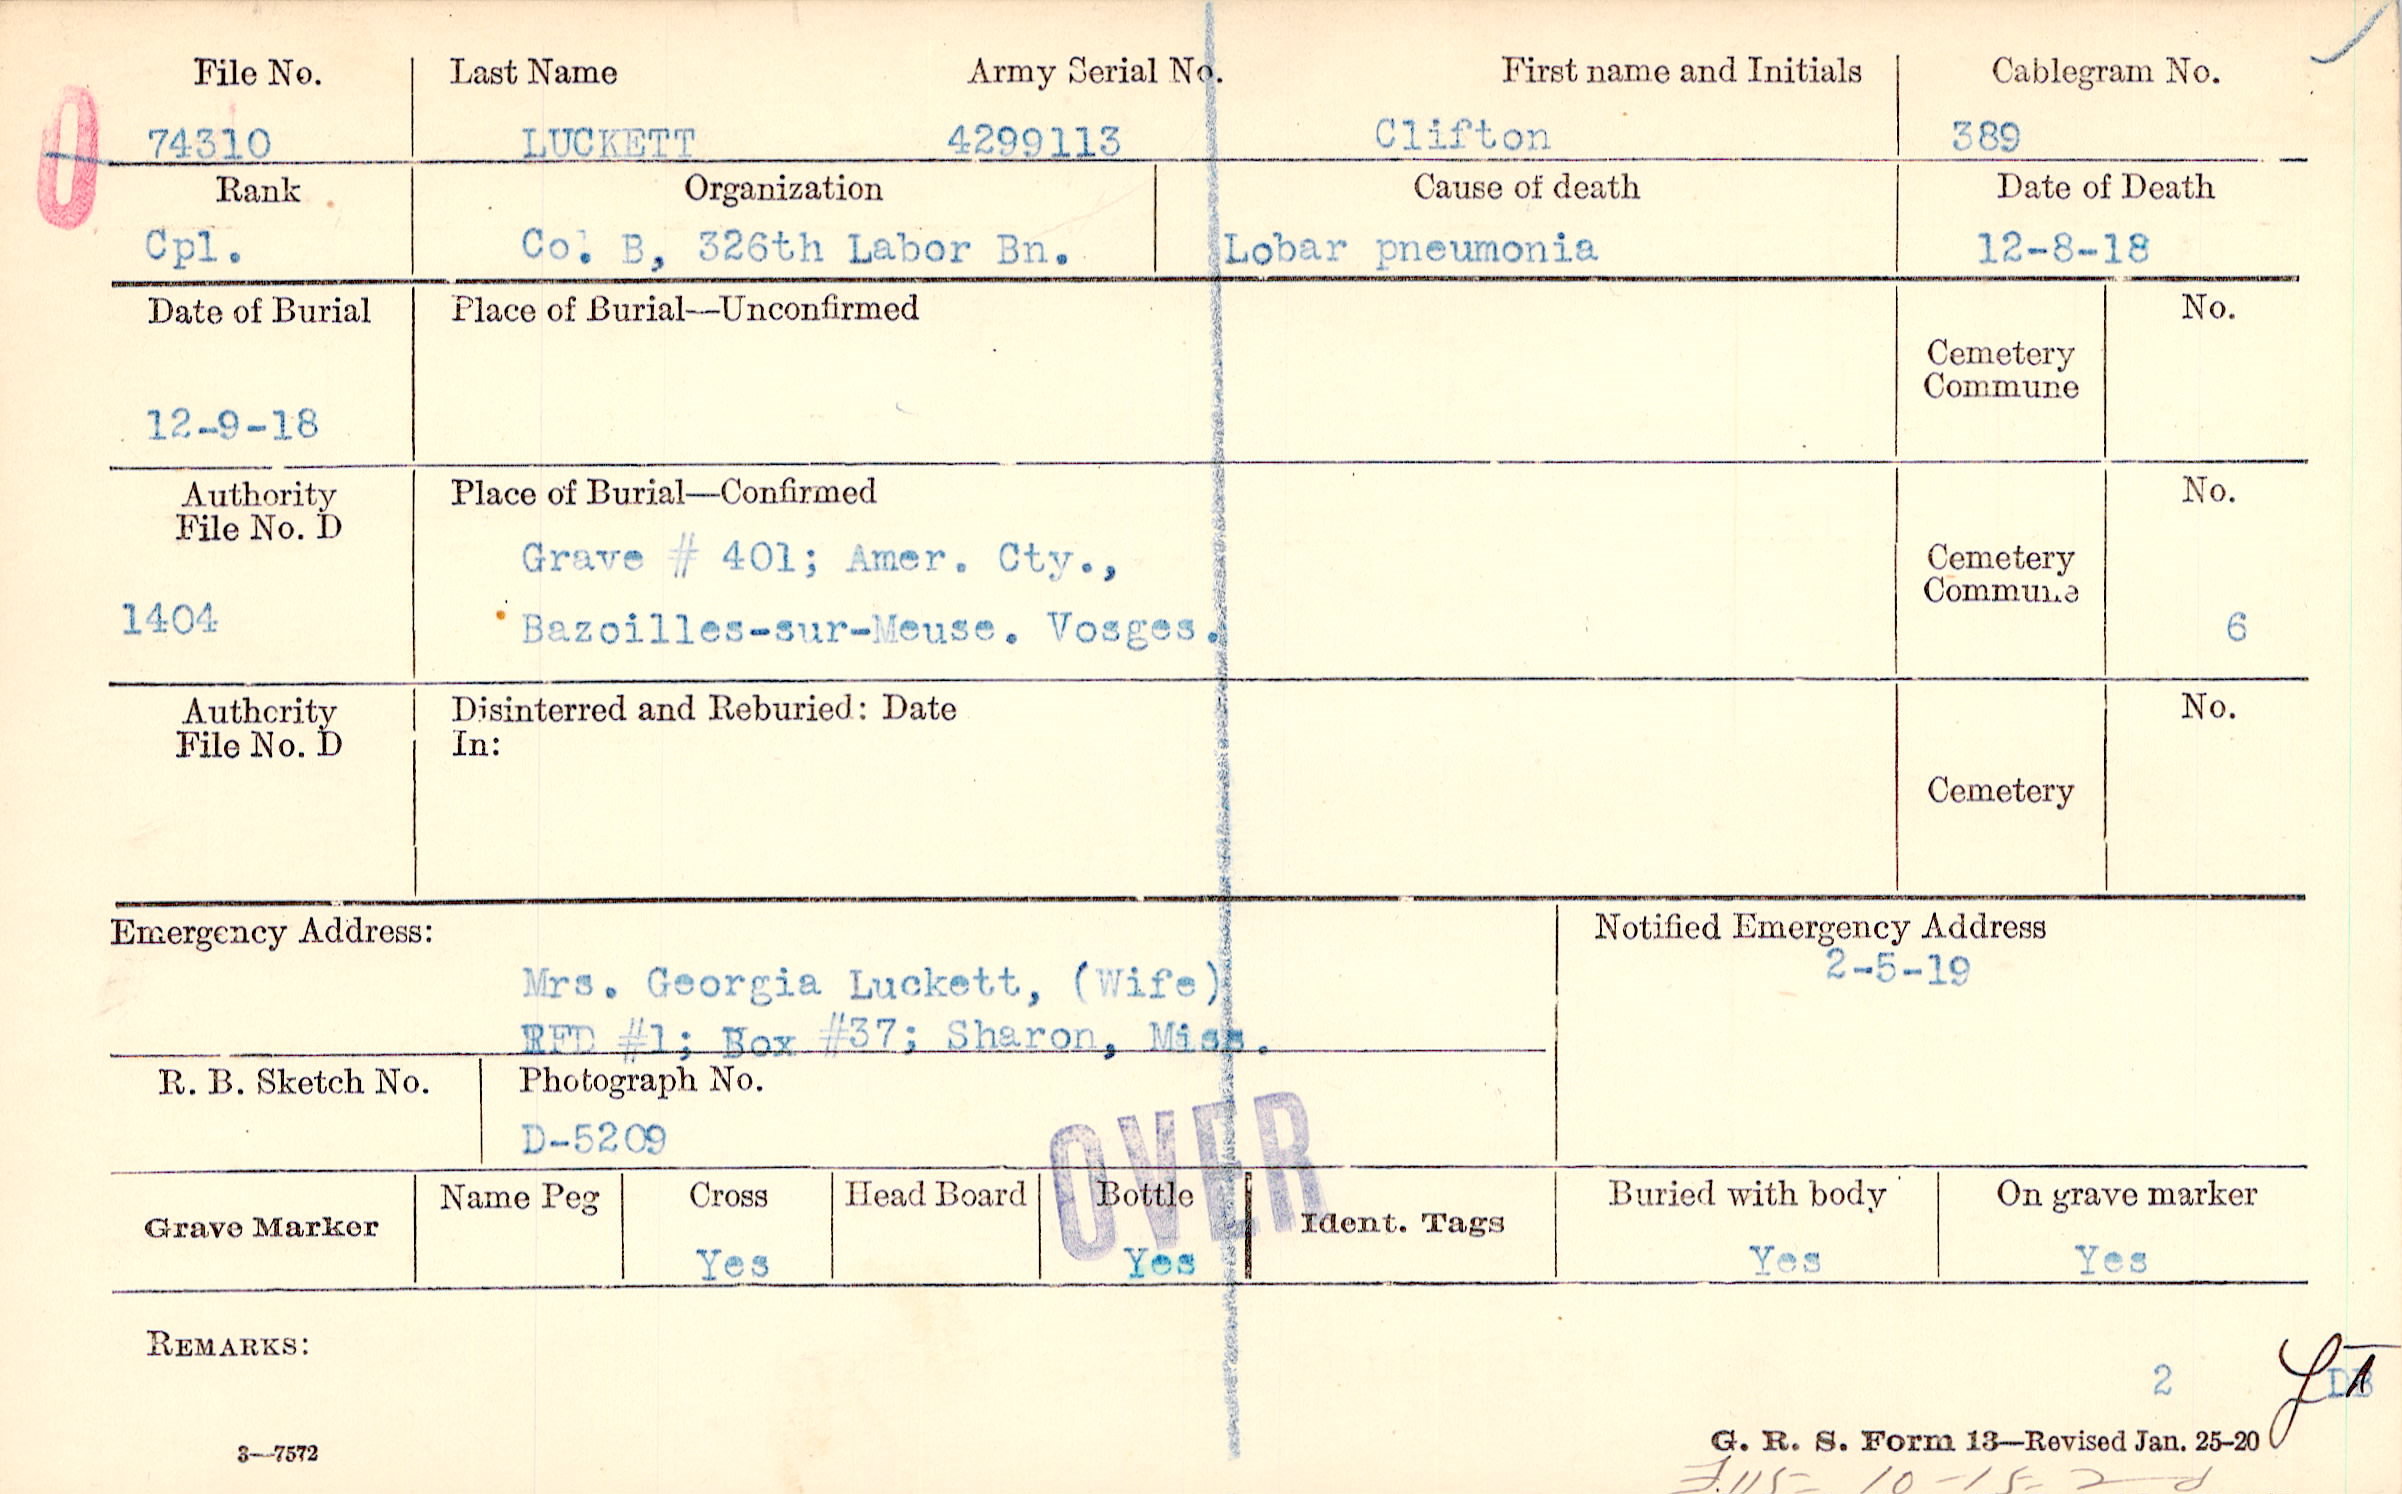 File No. Last Name Army Serial No. First name and Initials Cablegram No.
74310 LUCKETT 4299113 Clifton 389
Rank Organization Cause of death Date of Death
Cpl. Co. B, 326th Labor Bn. Lobar pneumonia 12-8-18
Date of Burial Place of Burial—Unconfirmed No.
Cemetery
Commune
12-9-18
Authority Place of Burial—Confirmed No.
File No. D
Grave # 401; Amer. Cty., Cemetery
Commune
1404 Bazoilles-sur-Meuse. Vosges. 6
Authority Disinterred and Reburied: Date No.
File No. D In:
Cemetery
Emergency Address: Notified Emergency Address
2-5-19
Mrs. Georgia Luckett, (Wife)
RFD #1; Box #37; Sharon, Miss.
R. B. Sketch No. Photograph No.
D-5209
OVER
Grave Marker Name Peg Cross Head Board Bottle Ident. Tags Buried with body On grave marker
Yes Yes Yes Yes
REMARKS:
2
3—7572 G. R. S. Form 13—Revised Jan. 25-20